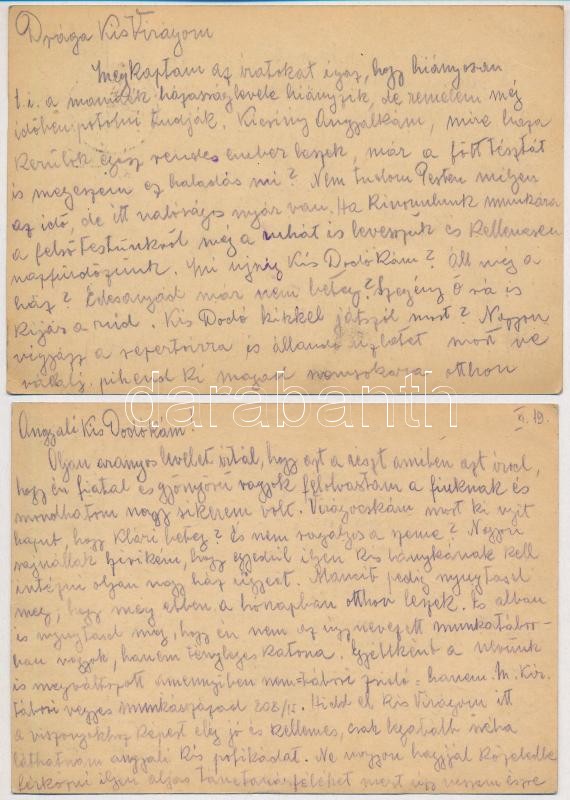 Drága Kis Virágom
Megkaptam az iratokat igaz, hogy hiányosan
t.i. a mamáék házasságlevele hiányzik, de remélem még
időben pótolni tudják. Kicsiny Angyalkám, mire haza
kerülök egész rendes ember leszek, már a főtt tésztát
is megeszem ez haladás mi? Nem tudom Pesten milyen
az idő, de itt valóságos nyár van. Ha kivonulunk munkára
a felső testünkről még a ruhát is levesszük és kellemesen
napfürdőzünk. Mi ujság Kis Dodókám? Áll még a
ház? Édesanyád már nem beteg? Szegény Ő rá is
kijár a rúd. Kis Dodó kikkel játszol most? Nagyon
vigyázz a repertoirra is állandó
vállalj. pihend ki magad otthon
darabanth
Angyali Kis Dodókám! 19.
Olyan aranyos levelet írtál, hogy azt a részt amiben azt írod,
hogy én fiatal és gyönyörű vagyok felolvastam a fiuknak és
mondhatom nagy sikerem volt. Virágocskám most ki nyit
kaput, hogy Klári beteg? És nem ragályos a szeme? Nagyon
sajnállak kicsikém, hogy egyedül ilyen kis lánykának kell
intézni olyan nagy ház ügyeit. Mancit pedig nyugtasd
meg, hogy még ebben a hónapban otthon leszek. És abban
is nyugtasd meg, hogy én nem az úgynevezett munkatábor-
ban vagyok, hanem tényleges katona. Egyébként a címünk
is megváltozott amennyiben nem = tábori = hanem M. Kir.
tábori vegyes munkásszázad 208/
Hidd el Kis Virágom itt
a viszonyokhoz képest elég jó és kellemes, csak legalább néha
láthatnám angyali kis pofikádat. Ne nagyon hagyjál közeledbe
férkőzni ilyen aljas mert úgy